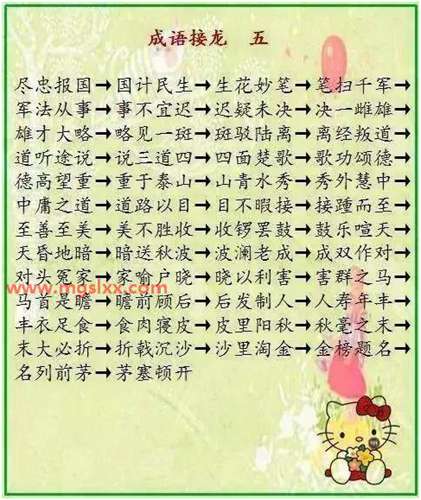 成语接龙 五
尽忠报国→国计民生→生花妙笔→笔扫千军→
军法从事→事不宜迟→迟疑未决→决一雌雄→
雄才大略→略见一斑→斑驳陆离→离经叛道→
道听途说→说三道四→四面楚歌→歌功颂德→
德高望重→重于泰山→山青水秀→秀外慧中→
中庸之道→道路以目→目不暇接→接踵而至→
至善至美→美不胜收→收锣罢鼓→鼓乐喧天→
天昏地暗→暗送秋波→波澜老成→成双作对→
对头冤家→家喻户晓→晓以利害→害群之马→
www.mgslxx.com
马首是瞻→瞻前顾后→后发制人→人寿年丰→
丰衣足食→食肉寝皮→皮里阳秋→秋毫之末→
末大必折→折戟沉沙→沙里淘金→金榜题名→
名列前茅→茅塞顿开